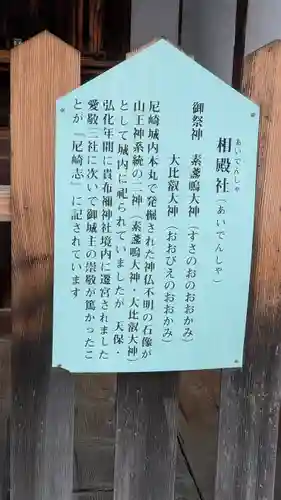 あいでんしゃ
相殿社（あいでんしゃ）
御祭神　素盞嗚大神（すさのおのおおかみ）
大比叡大神（おおびえのおおかみ）
尼崎城内本丸で発掘された神仏不明の石像が
山王神系統の二神（素盞嗚大神・大比叡大神）
として城内に祀られていましたが　天保・
弘化年間に貴布禰神社境内に遷宮されました
愛敬三社に次いで御城主の崇敬が篤かったこ
とが『尼崎志』に記されています